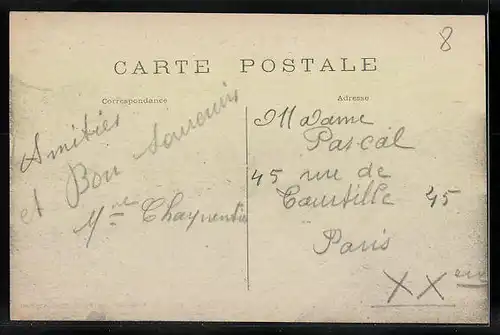 8
CARTE POSTALE
Correspondance
Adresse
Amitiés
et Bon Souvenir
Mme Charpentier
Madame
Pascal
45 rue de
Tourtille 45
Paris
XXem